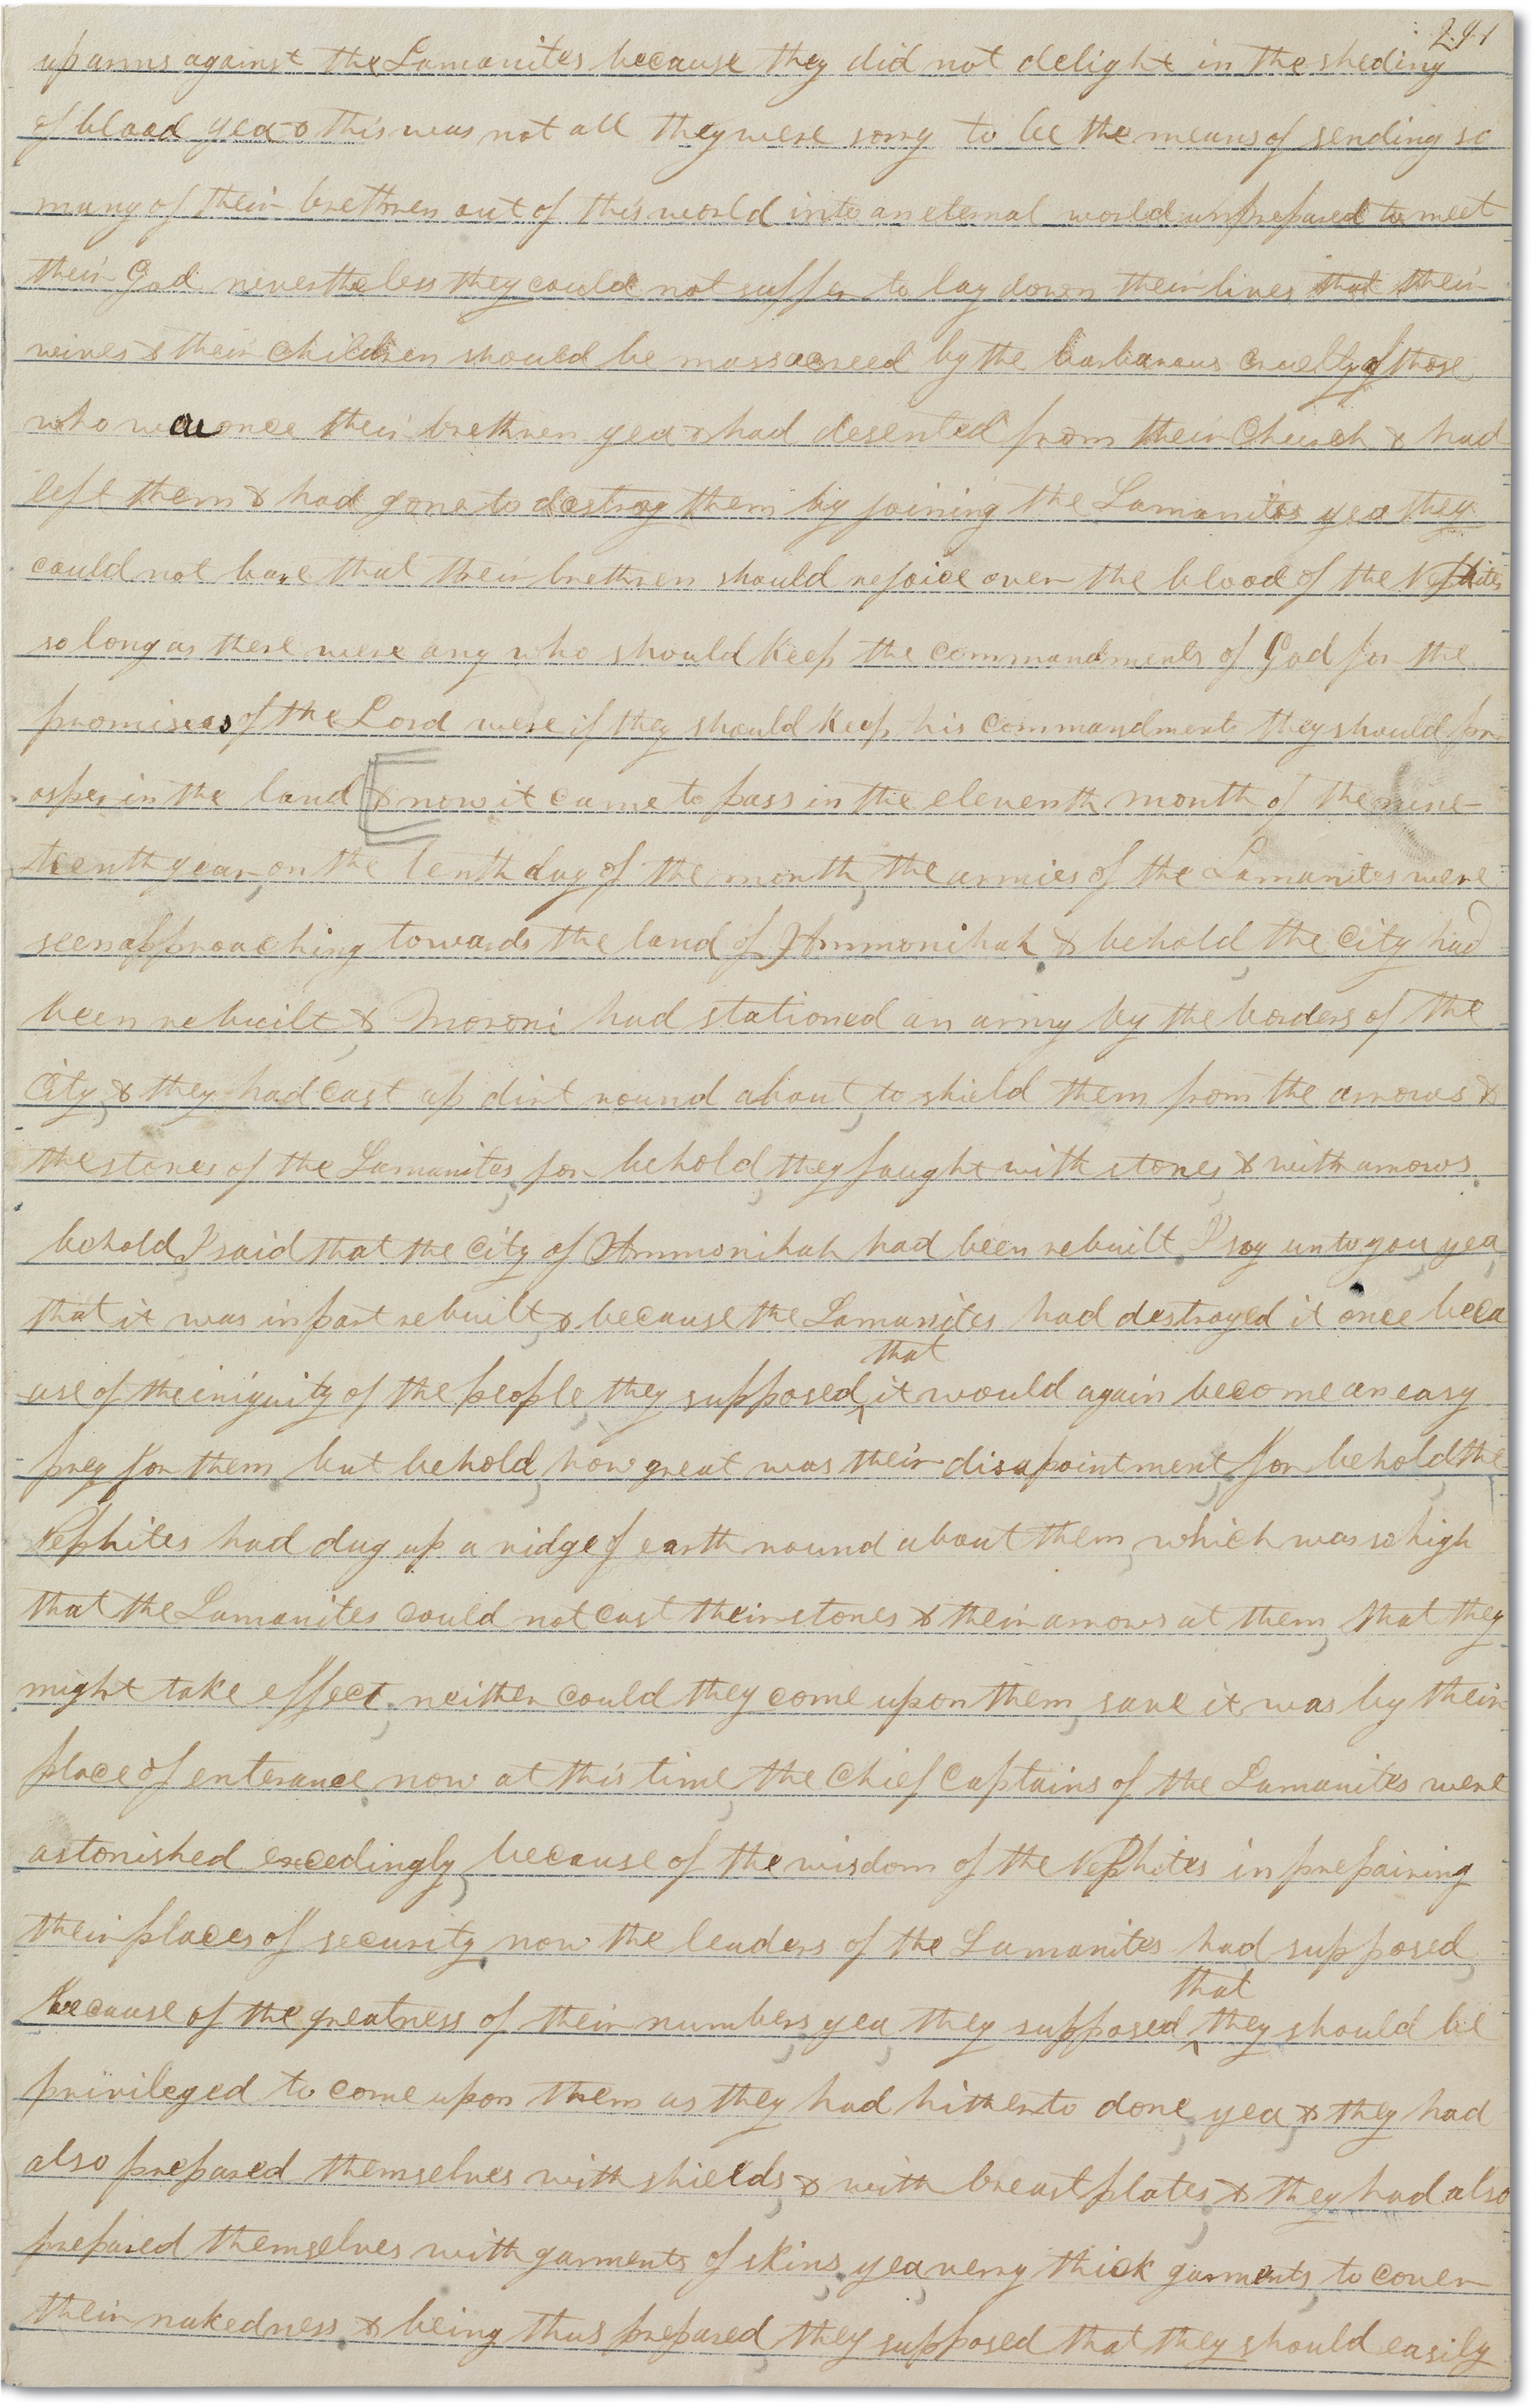 291
up arms against the Lamanites because they did not delight in the sheding
of blood yea & this was not all they were sorry to be the means of sending so
many of their brethren out of this world into an eternal world unprepared to meet
their God nevertheless they could not suffer to lay down their lives that their
wives & their children should be massacreed by the barbarous cruelty of those
who was once their brethren yea & had desented from their Church & had
left them & had gone to destroy them by joining the Lamanites yea they
could not bare that their brethren should rejoice over the blood of the Nephites
so long as there were any who should keep the commandments of God for the
promises of the Lord were if they should keep his commandments they should pr-
osper in the land [& now it came to pass in the eleventh month of the nine-
teenth year, on the tenth day of the month, the armies of the Lamanites were
seen approaching towards the land of Ammonihah. & behold, the city had
been rebuilt, & Moroni had stationed an army by the borders of the
City, & they had cast up dirt round about, to shield them from the arrows &
the stones of the Lamanites, for behold, they faught with stones, & with arrows.
behold, I said that the City of Ammonihah had been rebuilt. I say unto you, yea,
that it was in part rebuilt, & because the Lamanites had destroyed it once beca
use of the iniquity of the people, they supposed that it would again become an easy
prey for them. but behold, how great was their disapointment, for behold, the
Nephites had dug up a ridge of earth round about them, which was so high
that the Lamanites could not cast their stones & their arrows at them, that they
might take effect. neither could they come upon them, save it was by their
place of enterance. now at this time, the Chief Captains of the Lamanites were
astonished excedingly, because of the wisdom of the Nephites in prepairing
their places of security. now the leaders of the Lamanites had supposed,
because of the greatness of their numbers, yea, they supposed that they should be
privileged to come upon them as they had hitherto done, yea, & they had
also prepared themselves with shields, & with breastplates, & they had also
prepared themselves with garments of skins. yea, verry thick garments, to cover
their nakedness. & being thus prepared, they supposed that they should easily